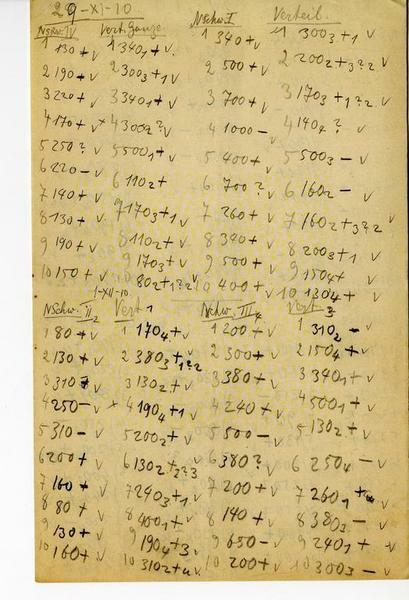 29-XI-10
Nschw. IV Vert. Ganze. Nschw. I Verteil.
1 130+v 1 3401+v 1 340+v 1 3003+1v
2 190+v 2 3003+1v 2 500+v 2 2002+3?2
3 220+v 3 3401+v 3 700+v 3 1703+1?2v
4 170+v × 4 3002?v 4 1000-v 4 1404?v
5 250?v 5 5001+v 5 400+v 5 5003-v
6 220-v 6 1102+ 6 700?v 6 1602-v
7 140+v 7 1703+1v 7 260+v 7 1602+3?2v
8 130+v 8 1102+v 8 340+v 8 2003+1v
9 190+v 9 1703+v 9 500+v 9 1504+v
10 150+v 10 802+1?2v 10 400+v 10 1304+v
1-XII-10
Nschw. II2 Vert 1 Nschw. III4 Vert. 3
1 80+v 1 1704+v 1 200+v 1 3102-v
2 130+v 2 3803+1?2 2 300+v 2 1504+v
3 310+v 3 1302+v 3 380+v 3 3401+v
4 250-v × 4 1904+1v 4 240+v 4 5001+v
5 310-v 5 2002+v 5 500-v 5 1302+v
6 200+v 6 1302+2?3v 6 380?v 6 2504-v
7 160+v 7 2403+1v 7 200+v 7 2601+v
8 80+v 8 4001+v 8 140+v 8 3803-v
9 130+v 9 1904+3v 9 650-v 9 2401+v
10 160+v 10 3102+4v 10 200+v 10 3003-v